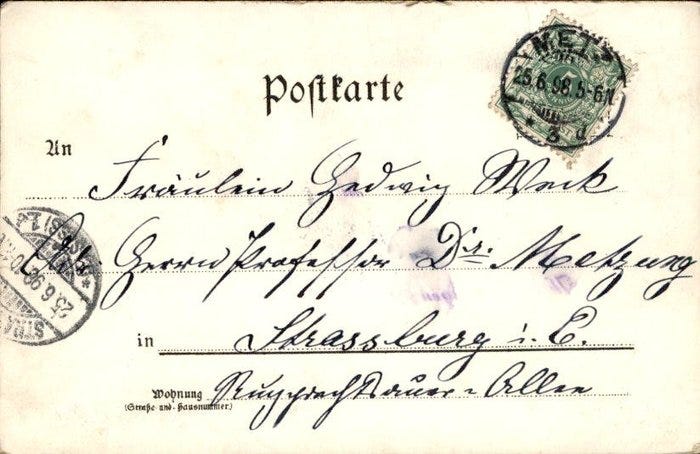 METZ
25.6.98.5-6N.
* 3 d
Postkarte
An
Fräulein Hedwig Weck
Herrn Professor Dr. Metzung
25.6.98
in Strassburg i. E.
Wohnung
(Straße und Hausnummer)
Ruprechtsauer-Allee